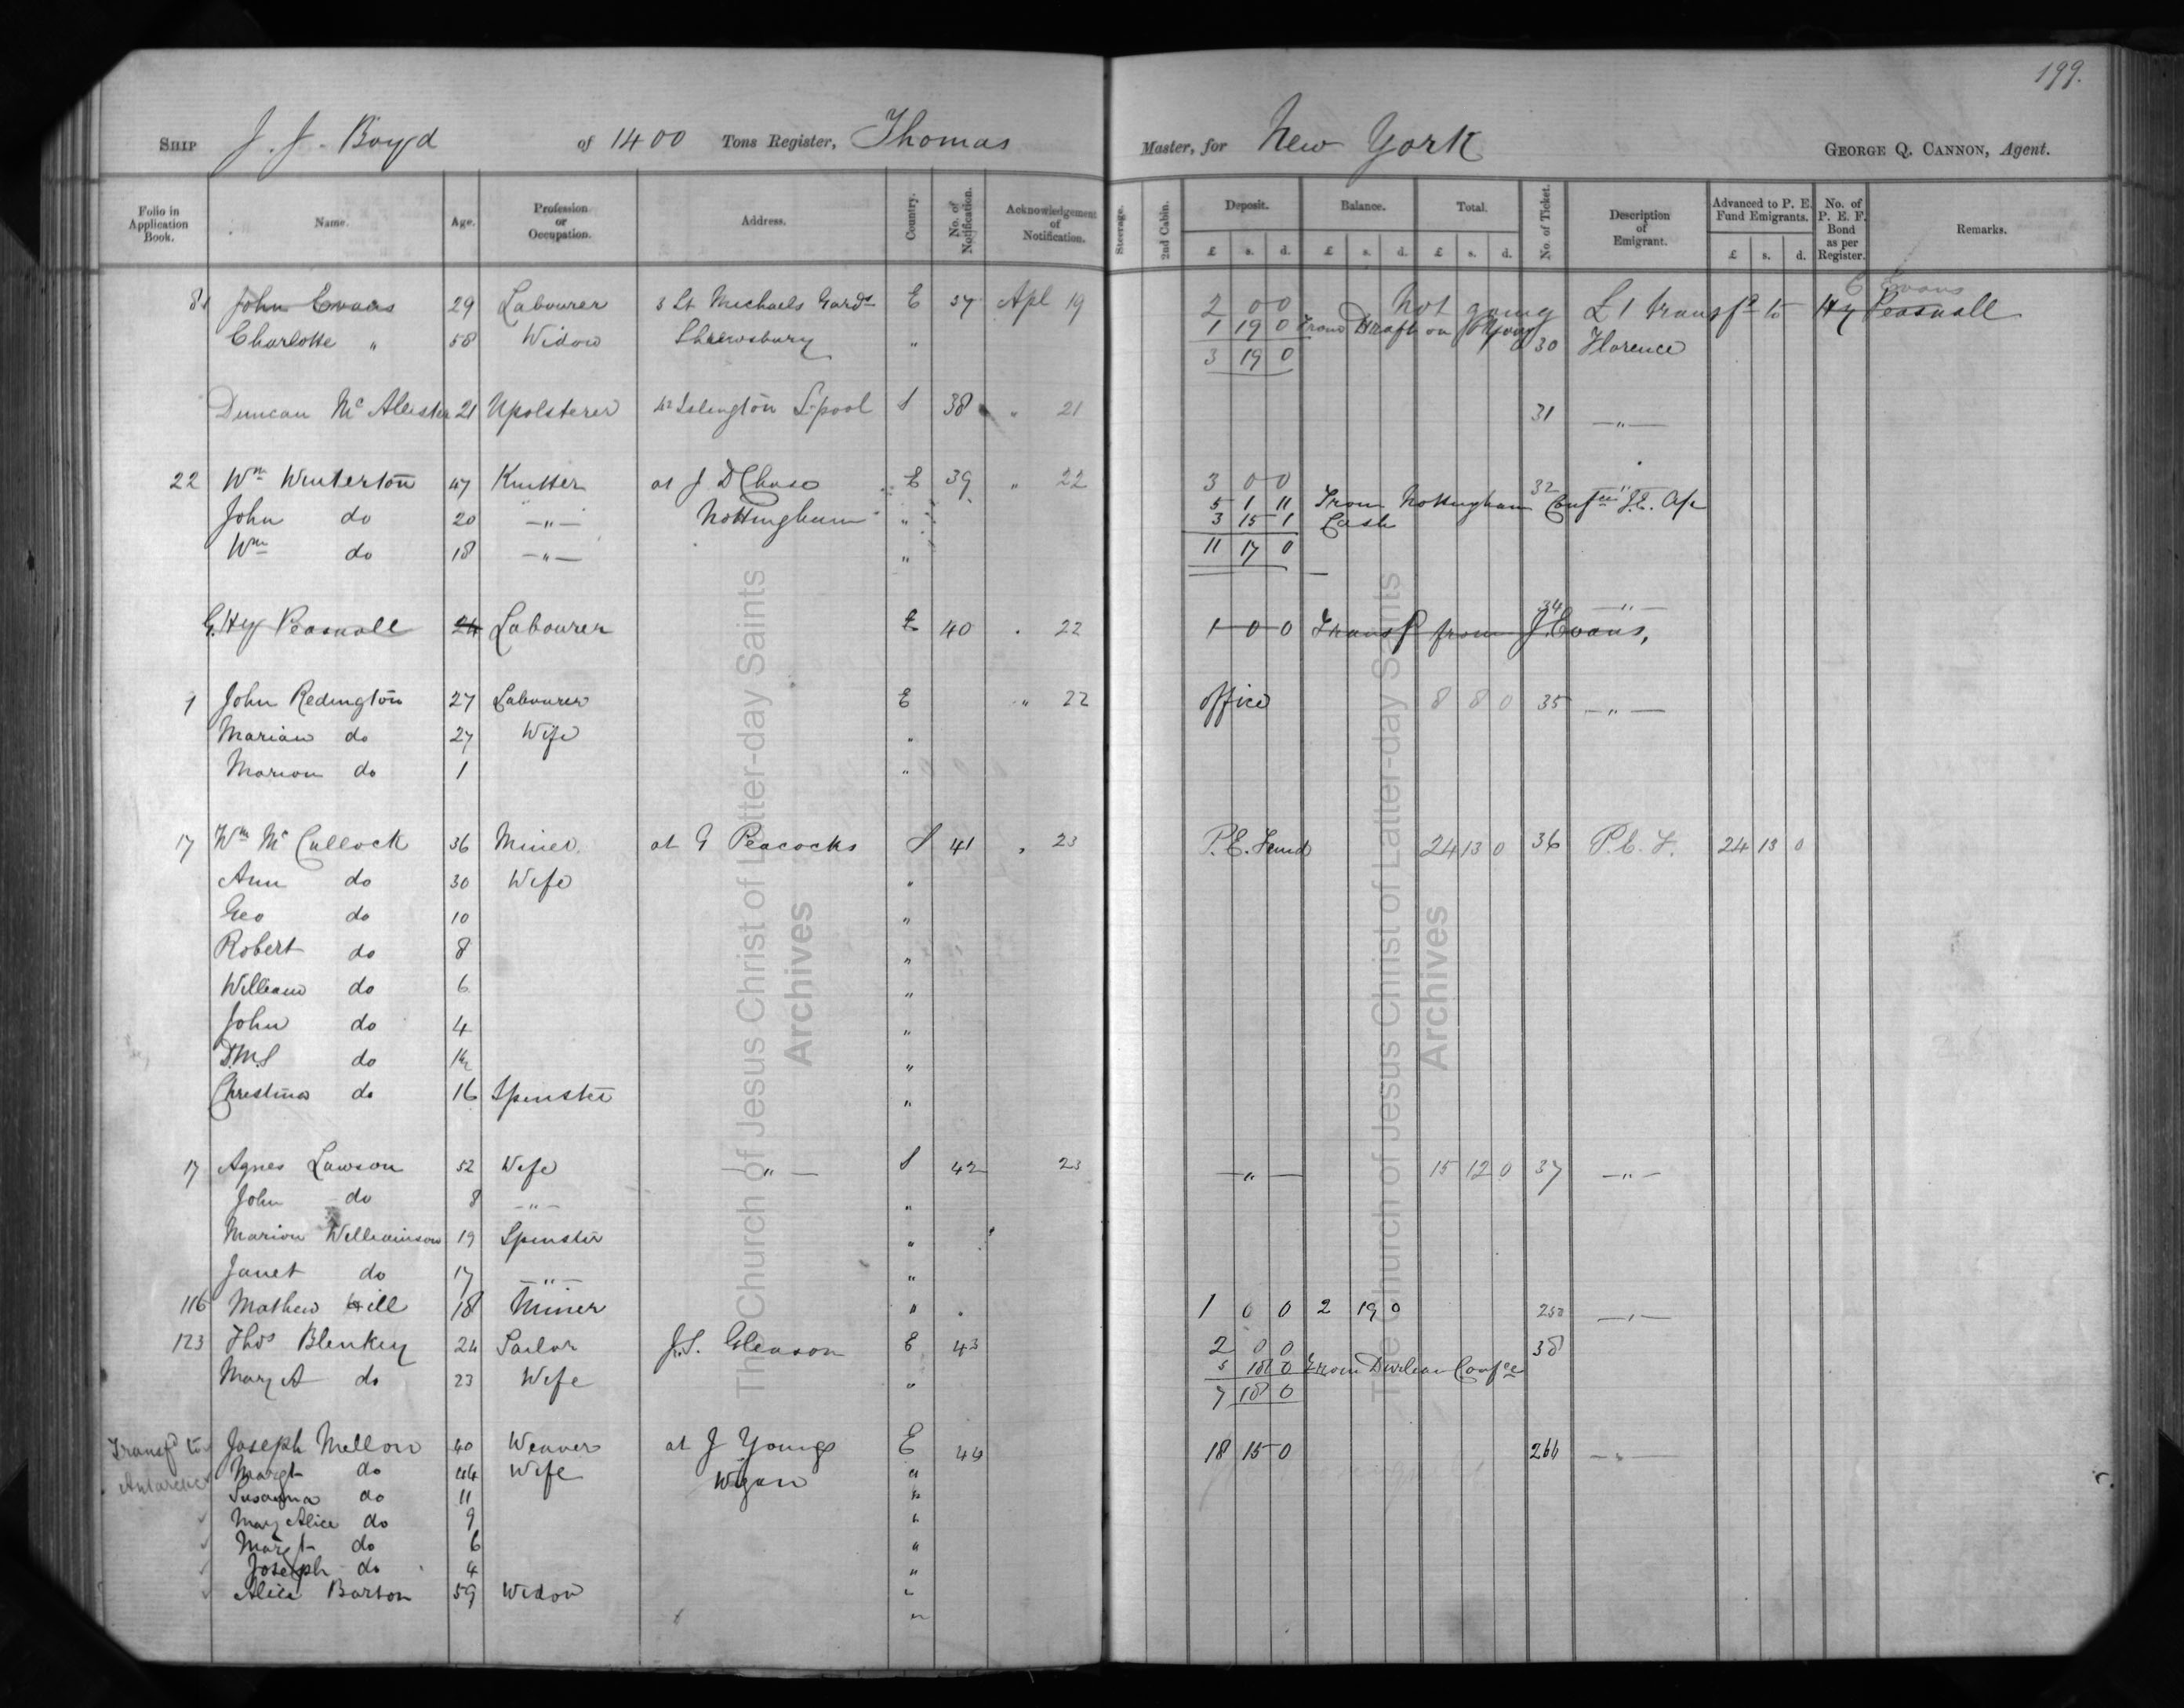 199.
SHIP J. J. Boyd of 1400 Tons Register, Thomas Master, for New York GEORGE Q. CANNON, Agent.
Folio in Application Book. Name. Age. Profession or Occupation. Address. Country. No. of Notification. Acknowledgement of Notification. Steerage. 2nd Cabin. Deposit. Balance. Total. No. of Ticket. Description of Emigrant. Advanced to P. E. Fund Emigrants. No. of P. E. F. Bond as per Register. Remarks.
£ s. d. £ s. d. £ s. d. £ s. d.
C Evans
81 John Evans 29 Labourer 3 St Michaels Gards E 37 Apl 19 2 0 0 Not going £1 transfd to Hy Peasnall
1 19 0 From Draft on
Charlotte " 58 Widow Shrewsbury " 3 19 0 30 Florence
Duncan Mc Allister 21 Upolsterer 42 Islington L-pool S 38 " 21 31 — " —
22 Wm Winterton 47 Knitter at J D Chase E 39 " 22 3 0 0 32 "
5 1 11 From Nottingham Confce
John do 20 — " — Nottingham " 3 15 1 Cash
Wm do 18 — " — " 11 17 0
34 — " —
G. Hy Peasnall 24 Labourer E 40 " 22 1 0 0 Transfd from J. Evans,
1 John Redington 27 Labourer E " 22 office 8 8 0 35 — " —
Marian do 27 Wife "
Marion do 1 "
17 Wm Mc Cullock 36 Miner at G Peacocks S 41 " 23 P. E. Fund 24 13 0 36 P. E. F. 24 13 0
Ann do 30 Wife "
Geo do 10 "
Robert do 8 "
William do 6 "
John do 4 "
D.M.S do "
Christina do 16 Spinster "
17 Agnes Lawson 52 Wife — " — S 42 23 — " — 15 12 0 37 — " —
John do 8 — " — "
Marion Williamson 19 Spinster "
Janet do 17 — " — "
116 Mathew Hill 18 Miner " 1 0 0 2 19 0 250 — " —
123 Thos Blenkey 24 Sailor J. S. Gleason E 43 2 0 0 38
5 18 0 From Durham Confce
Mary A do 23 Wife " 7 18 0
Transfd to Joseph Mellor 40 Weaver at J Youngs E 44 18 15 0 266 — " —
Antarctic Margt do 44 Wife Wigan "
Susanna do 11 "
Mary Alice do 9 "
Margt do 6 "
Joseph do 4 "
Alice Barton 59 Widow "
"
The Church of Jesus Christ of Latter-day Saints
Archives
The Church of Jesus Christ of Latter-day Saints
Archives